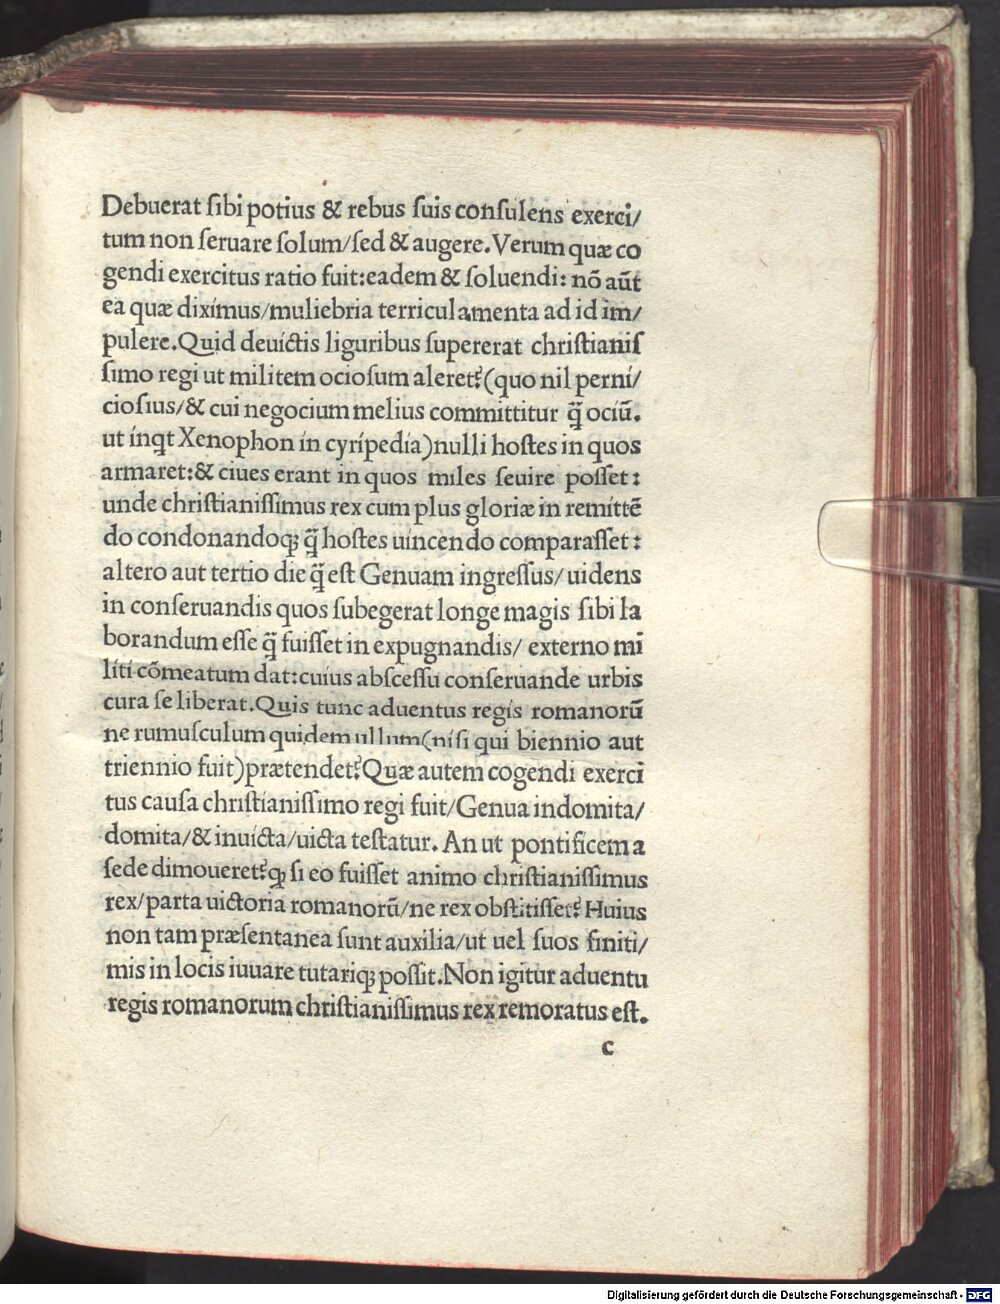 Debuerat ſibi potius & rebus ſuis conſulens exerci/
tum non ſeruare ſolum/ſed & augere. Verum quæ co
gendi exercitus ratio fuit:eadem & ſoluendi: nõ aũt
ea quæ diximus/muliebria terriculamenta ad id im/
pulere. Quid deuictis liguribus ſupererat chriſtianiſ
ſimo regi ut militem ocioſum aleret?(quo nil perni/
cioſius/& cui negocium melius committitur q̃̃ ociũ.
ut inqt Xenophon in cyripedia)nulli hoſtes in quos
armaret:& ciues erant in quos miles ſeuire poſſet:
unde chriſtianiſſimus rex cum plus gloriæ in remittẽ
do condonandoqꝫ q̃̃ hoſtes uincendo comparaſſet:
altero aut tertio die q̃̃ eſt Genuam ingreſſus/uidens
in conſeruandis quos ſubegerat longe magis ſibi la
borandum eſſe q̃̃ fuiſſet in expugnandis/ externo mi
liti cõmeatum dat:cuius abſceſſu conſeruande urbis
cura ſe liberat. Quis tunc aduentus regis romanorũ
ne rumuſculum quidem ullum(niſi qui biennio aut
triennio fuit)prætendet? Quæ autem cogendi exerci
tus cauſa chriſtianiſſimo regi fuit/Genua indomita/
domita/& inuicta/uicta teſtatur. An ut pontificem a
ſede dimoueret?qꝫ ſi eo fuiſſet animo chriſtianiſſimus
rex/parta uictoria romanorũ/ne rex obſtitiſſet? Huius
non tam præſentanea ſunt auxilia/ut uel ſuos finiti/
mis in locis iuuare tutariqꝫ poſſit. Non igitur aduentu
regis romanorum chriſtianiſſimus rex remoratus eſt.
c
Digitalisierung gefördert durch die Deutsche Forschungsgemeinschaft - DFG